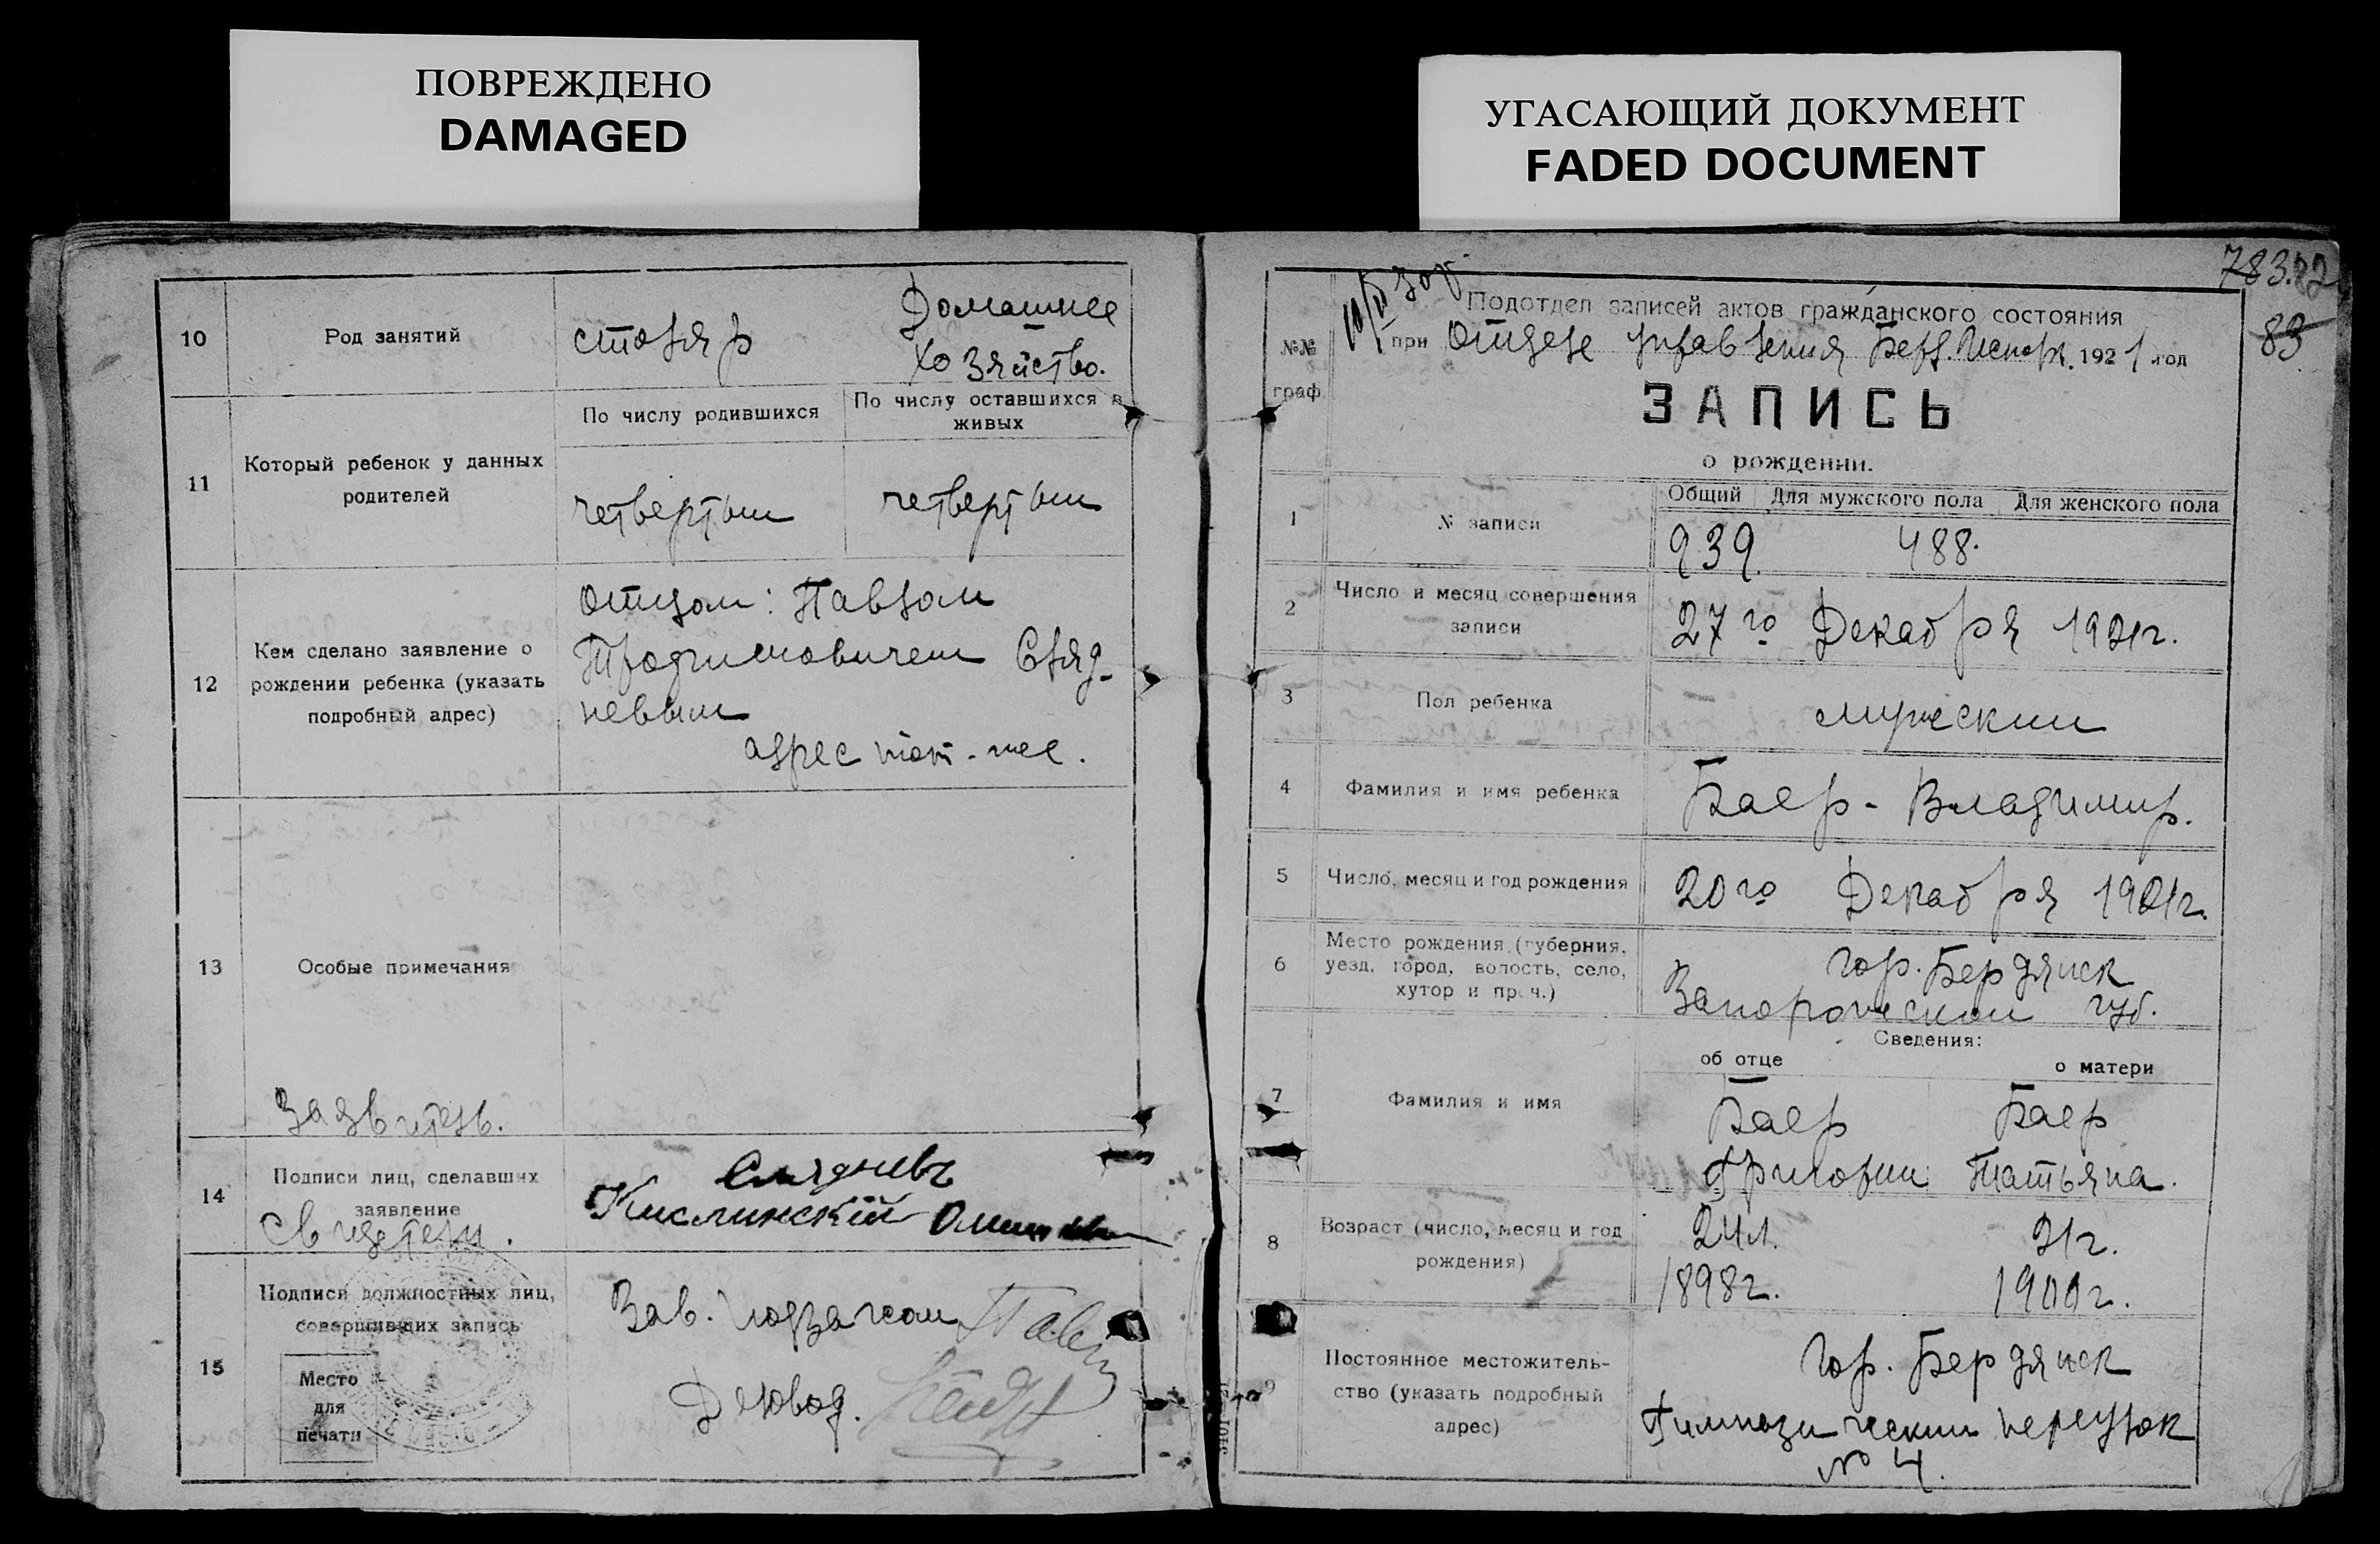 ПОВРЕЖДЕНО
DAMAGED
УГАСАЮЩИЙ ДОКУМЕНТ
FADED DOCUMENT
10
Род занятий
столяр
Домашнее
хозяйство.
11
Который ребенок у данных
родителей
По числу родившихся
По числу оставшихся в
живых
четвертый
четвертый
12
Кем сделано заявление о
рождении ребенка (указать
подробный адрес)
Отцом: Павлом
Трофимовичем Сляд-
невым
адрес тот-же.
13
Особые примечания
Заявитель.
14
Подписи лиц, сделавших
заявление
Свидетели.
Слядневъ
Кислинскій
15
Подписи должностных лиц,
совершивших запись
Место
для
печати
Зав. подзагсом
Деловод.
783.
83
№№
граф.
Подотдел записей актов гражданского состояния
при Отделе Управления Берд. Исполк. 1921 год
ЗАПИСЬ
о рождении.
1
№ записи
Общий Для мужского пола Для женского пола
939. 488.
2
Число и месяц совершения
записи
27го Декабря 1921г.
3
Пол ребенка
мужский
4
Фамилия и имя ребенка
Баер - Владимир.
5
Число, месяц и год рождения
20го Декабря 1921г.
6
Место рождения (губерния,
уезд, город, волость, село,
хутор и проч.)
гор. Бердянск
Запорожской губ.
Сведения:
об отце
о матери
7
Фамилия и имя
Баер
Григорий
Баер
Татьяна.
8
Возраст (число, месяц и год
рождения)
24л.
1898г.
21г.
1900г.
9
Постоянное местожитель-
ство (указать подробный
адрес)
Гор. Бердянск
Гимназический переулок
№ 4.